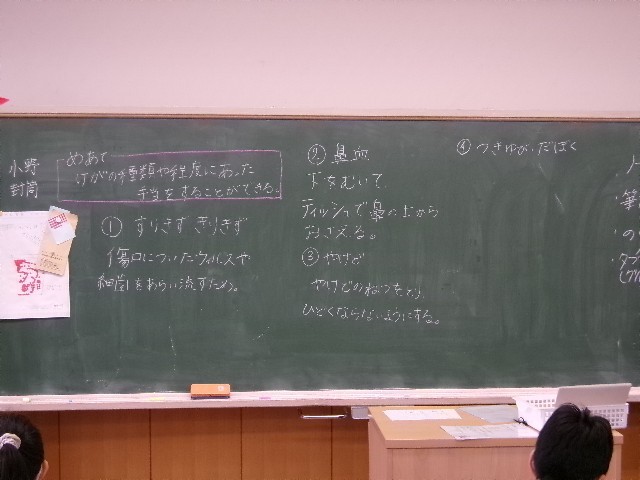 小野
封筒
めあて
けがの種類や程度にあった
手当をすることができる。
① すりきず きりきず
傷口についたウィルスや
細菌をあらい流すため。
② 鼻血
下をむいて
ティッシュで鼻の上から
おさえる。
③ やけど
やけどのねつをとり
ひどくならないようにする。
④ つきゆび、だぼく